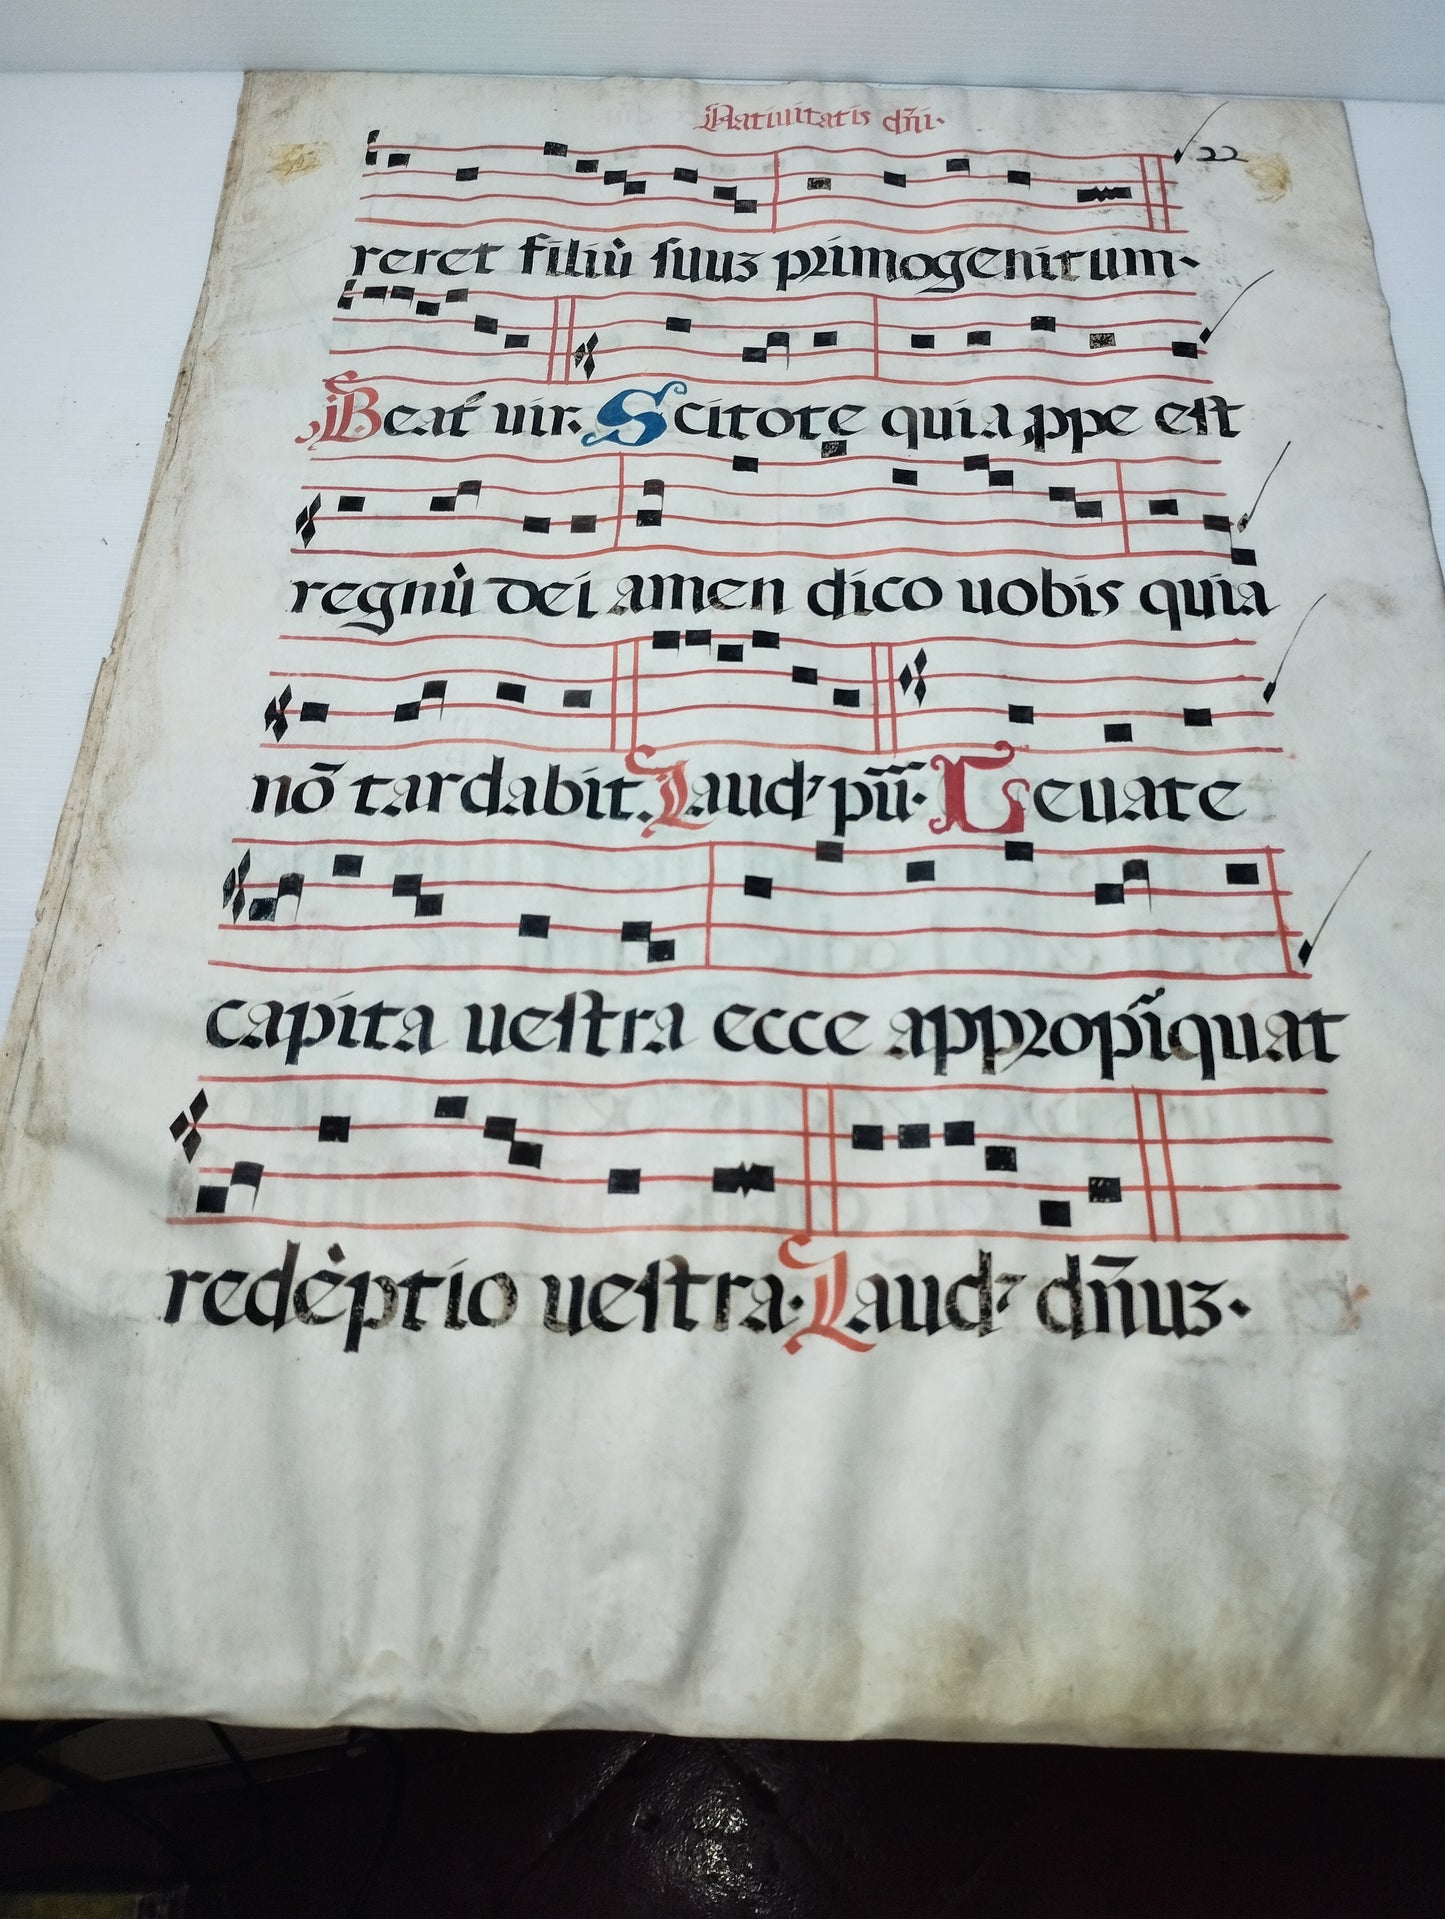 Natiuitatis dn̄i·
22
reret filiu̇ ſuuʒ primogenitum·
Beat᷑ uir. Scitote quia ꝓpe eſt
regnu̇ dei amen dico uobis quia
nō tardabit. Laudꝫ pūī· Leuate
capita ueſtra ecce appropīquat
redėptio ueſtra· Laudꝫ dn̄uʒ·